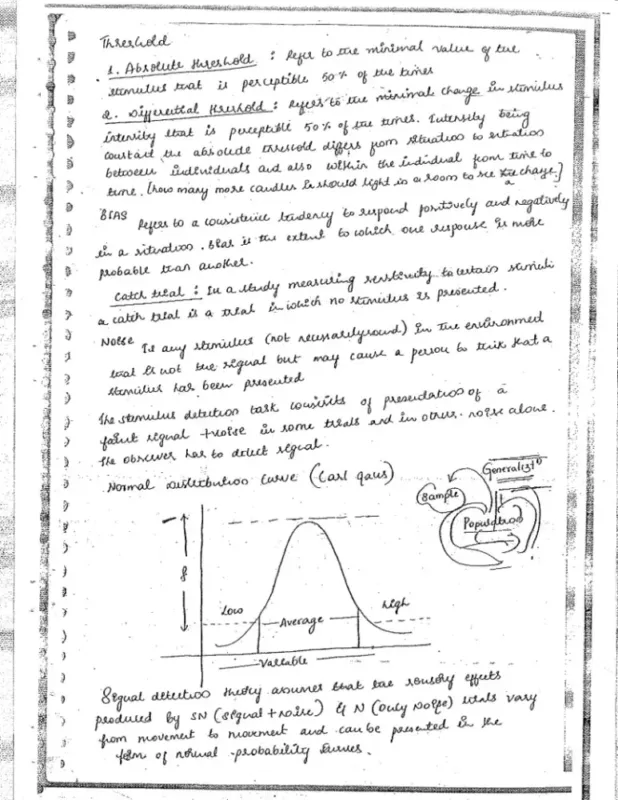 Threshold
1. Absolute threshold : Refer to the minimal value of the
stimulus that is perceptible 50% of the times
2. Differential threshold : Refers to the minimal change in stimulus
intensity that is perceptible 50% of the times. Intensity being
constant the absolute threshold differs from situation to situation
between individuals and also within the individual from time to
time. [how many more candles is should light in a room to see the change]
a
BIAS
Refers to a consistence tendency to respond positively and negatively
in a situation. Bias is the extent to which one response is more
probable than another.
Catch trial : In a study measuring sensitivity to certain stimuli
a catch trial is a trial in which no stimulus is presented.
Noise Is any stimulus (not necessarily sound) in the environmed
that is not the signal but may cause a person to think that a
stimulus has been presented
The stimulus detection task consists of presendation of a
faint signal +noise in some trials and in other. noise alone.
The observer has to detect signal.
Normal Distribution Curve (Carl gaus)
Generalist
Sample
Population
f
Low
Average
high
Variable
Signal detection theory assumes that the sensory effects
produced by SN (signal + noise) & N (only Noise) trials vary
from movement to movement and can be presented in the
form of normal probability curves.